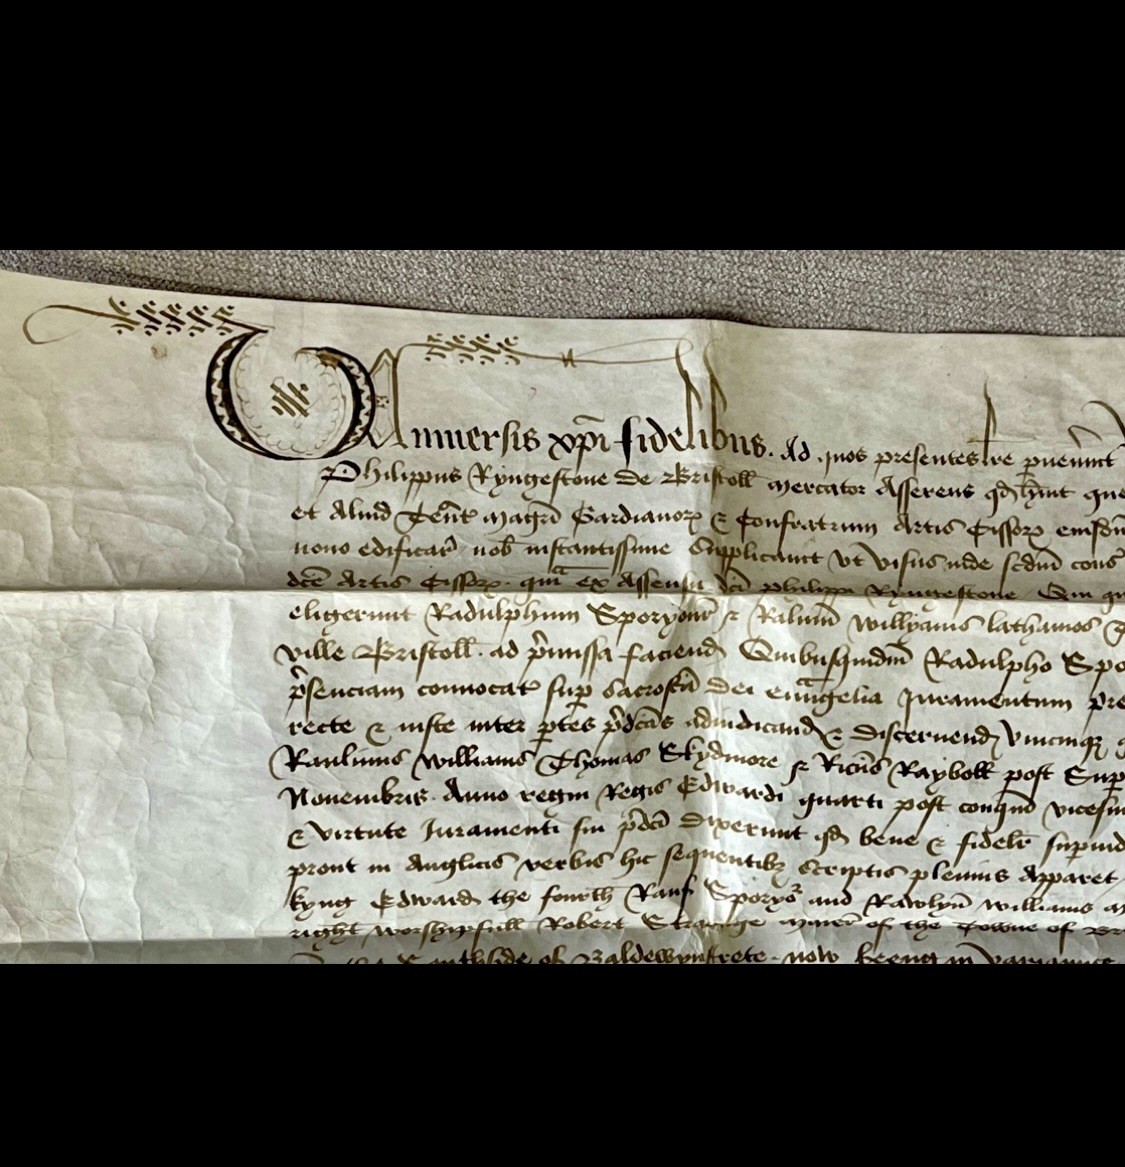 Uniuersis xp̄i fidelibus. Ad quos presentes lr̄e pueniint
Philippus Ryngestone de Bristoll mercator Asserens qd
et Aliud Teñt magr̄i Gardianorꝝ & Confratrum Artis Cissorꝝ
nouo edificar̄ nob̄ instantissime Supplicauit vt visus inde scdm̄
dc̄e Artis Cissorꝝ. ex Assensu dc̄i Philippi Ryngestone
eligerunt Radulphum Sporyour & Raulm̄ Willyams lathamos
ville Bristoll. ad p̄missa faciend Quibusquidm̄ Radulpho
p̄senciam conuocat sup sacrosc̄a dei euangelia Juramentum
recte & iuste inter ptes p̄dcas adiudicand & discernend vtrumqꝫ
Raulinus Williams Thomas Skydmore & Ric̄us Raybolt post
Nouembris. Anno regni Regis Edwardi quarti post conqm̄
& virtute Juramenti sui p̄dc̄i dixerunt qd bene & fidelr̄
prout in Anglicis verbis hic sequentibꝫ scriptis plenius Apparet
kyng Edward the fourth Rauf Sporyor and Rawlyn Williams
right worshipfull Robert Straunge mayer of the Towne of
of Baldewynstrete. now beeng in